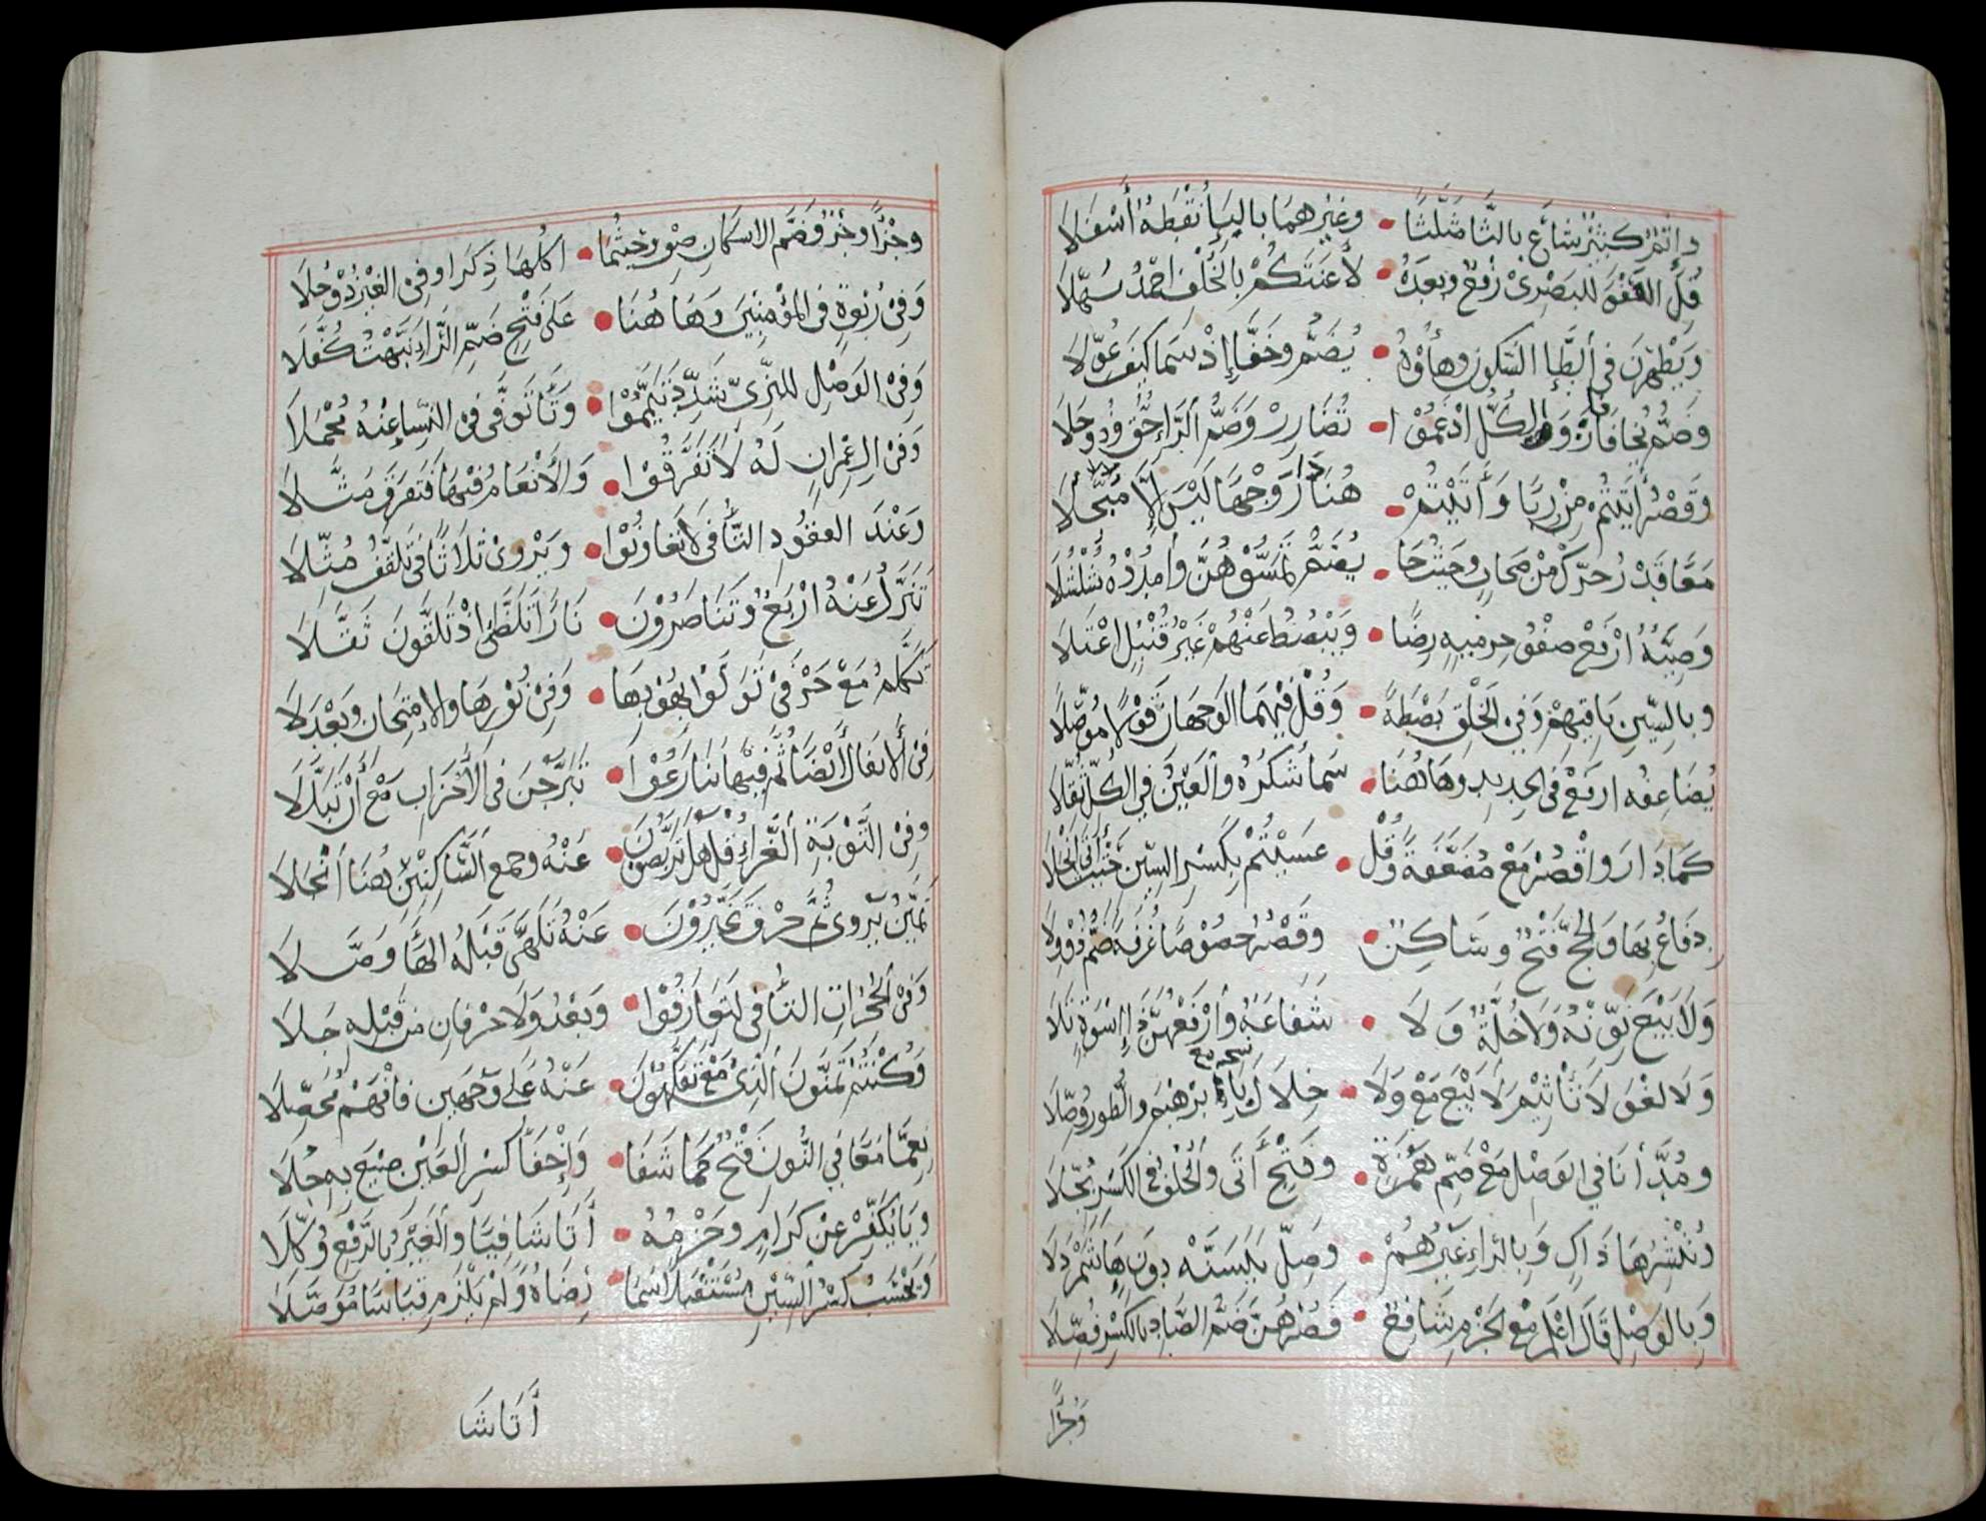 وإثم كبير شاع بالثا مثلثا • وغيرهما بالياء نقطة أسفلا
قل العفو للبصري رفع وبعده • لأعنتكم بالخلف احمد سهلا
ويطهرن في الطاء السكون وهاؤه • يضم وخفا إذ سما كيف عولا
وضم يخافا فاز والكل ادغموا • تضارر وضم الراء حق وذو جلا
وقصر أتيتم من ربا وأتيتم • هنا دار وجها ليس إلا مبجلا
معا قدر حرك من صحاب وحيث جا • يضم تمسوهن وامدده شلشلا
وصية ارفع صفو حرميه رضا • ويبصط عنهم غير قنبل اعتلا
وبالسين باقيهم وفي الخلق بصطة • وقل فيهما الوجهان قولا موصلا
يضاعفه ارفع في الحديد وهاهنا • سما شكره والعين في الكل ثقلا
كما دار واقصر مع مضعفة وقل • عسيتم بكسر السين حيث أتى انجلا
دفاع بها والحج فتح وساكن • وقصر خصوصا غرفة ضم ذو ولا
ولا بيع نونه ولا خلة ولا • شفاعة وارفعهن ذا اسوة تلا
ولا لغو لا تأثيم لا بيع مع ولا • خلال بإبرهيم والطور وصلا
ومد أنا في الوصل مع ضم همزة • وفتح أتى والخلف في الكسر بجلا
وننشزها ذاك وبالراء غيرهم • وصل يتسنه دون هاء شمردلا
وبالوصل قال اعلم مع الجزم شافع • فصرهن ضم الصاد بالكسر فصلا
وجزءا
وجزءا وجزء ضم الاسكان صف وحيثما • اكلها ذكرا وفي الغير ذو حلا
وفي ربوة في المؤمنين وهاهنا • على فتح ضم الراء نبهت كفلا
وفي الوصل للبزي شدد تيمموا • وتاء توفى في النسا عنه مجملا
وفي ال عمران له لا تفرقوا • والأنعام فيها فتفرق مثلا
وعند العقود التاء في لا تعاونوا • ويروي ثلاثا في تلقف مثلا
تنزل عنه اربع وتناصرون • نارا تلظى إذ تلقون ثقلا
تكلم مع حرفي تولوا بهودها • وفي نورها والامتحان وبعد لا
في الأنفال أيضا ثم فيها تنازعوا • تبرجن في الأحزاب مع أن تبدلا
وفي التوبة الغراء قل هل تربصون • عنه وجمع الساكنين هنا انجلا
تميز يروي ثم حرف تخيرون • عنه تلهى قبله الهاء وصلا
وفي الحجرات التاء في لتعارفوا • وبعد ولا حرفان من قبله جلا
وكنتم تمنون الذي مع تفكهون • عنه على وجهين فافهم محصلا
نعما معا في النون فتح كما شفا • وإخفاء كسر العين صيغ به حلا
ويا يكفر عن كرام وجزمه • أتا شافيا والغير بالرفع وكلا
ويحسب كسر السين مستقبلا سما • رضاه ولم يلزم قياسا موصلا
أتا شا